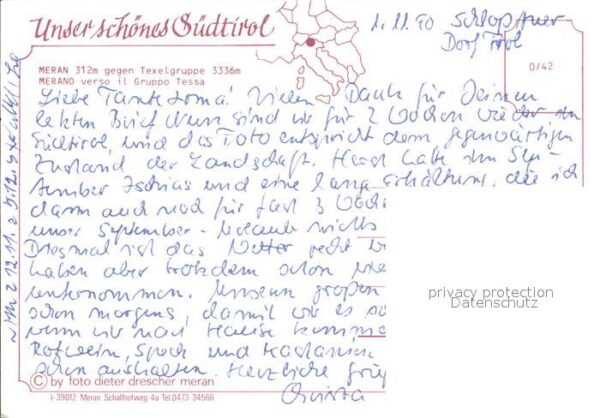 Unser schönes Südtirol
1.11.90 Schloß Auer
Dorf Tirol
0/42
MERAN 312m gegen Texelgruppe 3336m
MERANO verso il Gruppo Tessa
Liebe Tante Irma! Vielen Dank für Deinen
letzten Brief. Nun sind wir für 2 Wochen wieder in
Südtirol, und das Foto entspricht dem gegenwärtigen
Zustand der Landschaft. Horst hatte im Sep-
tember Ischias und eine lange Erkältung, die ich
dann auch noch für fast 3 Woch
unser September-
Diesmal ist das Wetter recht
haben aber trotzdem schon
unternommen. Unseren großen
schon morgens, damit wir es
wenn wir nach Hause komme
Rotwein, Speck und Kastanien
schon aushalten. Herzliche Grüß
Christa
privacy protection
Datenschutz
© by foto dieter drescher meran
I-39012 Meran Schallhofweg 4a Tel.0473-34566